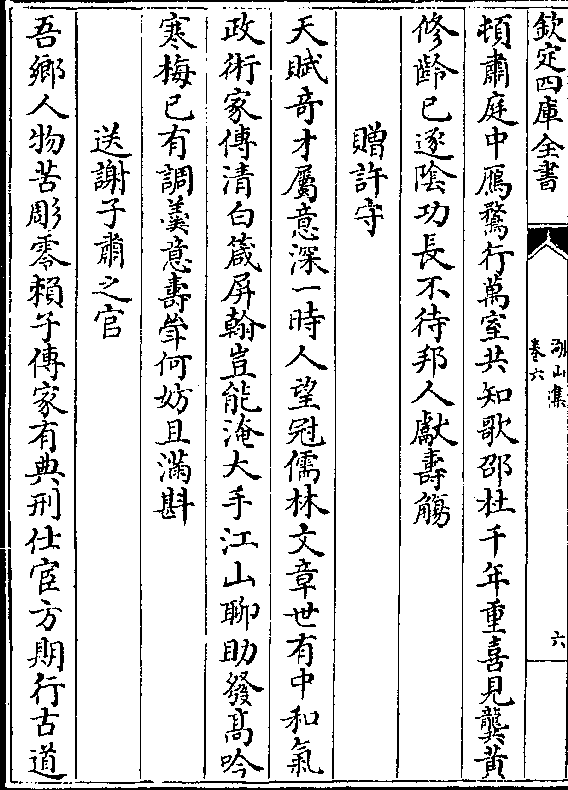 欽定四庫全書
湖山集
卷六
六
頓肅庭中鴈鶩行萬室共知歌邵杜千年重喜見龔黄
修齡已逐隂功長不待邦人獻壽觴
贈許守
天賦竒才屬意深一時人望冠儒林文章世有中和氣
政術家傳清白箴屏翰豈能淹大手江山聊助發髙吟
寒梅已有調羮意壽斚何妨且滿斟
送謝子肅之官
吾鄉人物苦彫零賴子傳家有典刑仕宦方期行古道